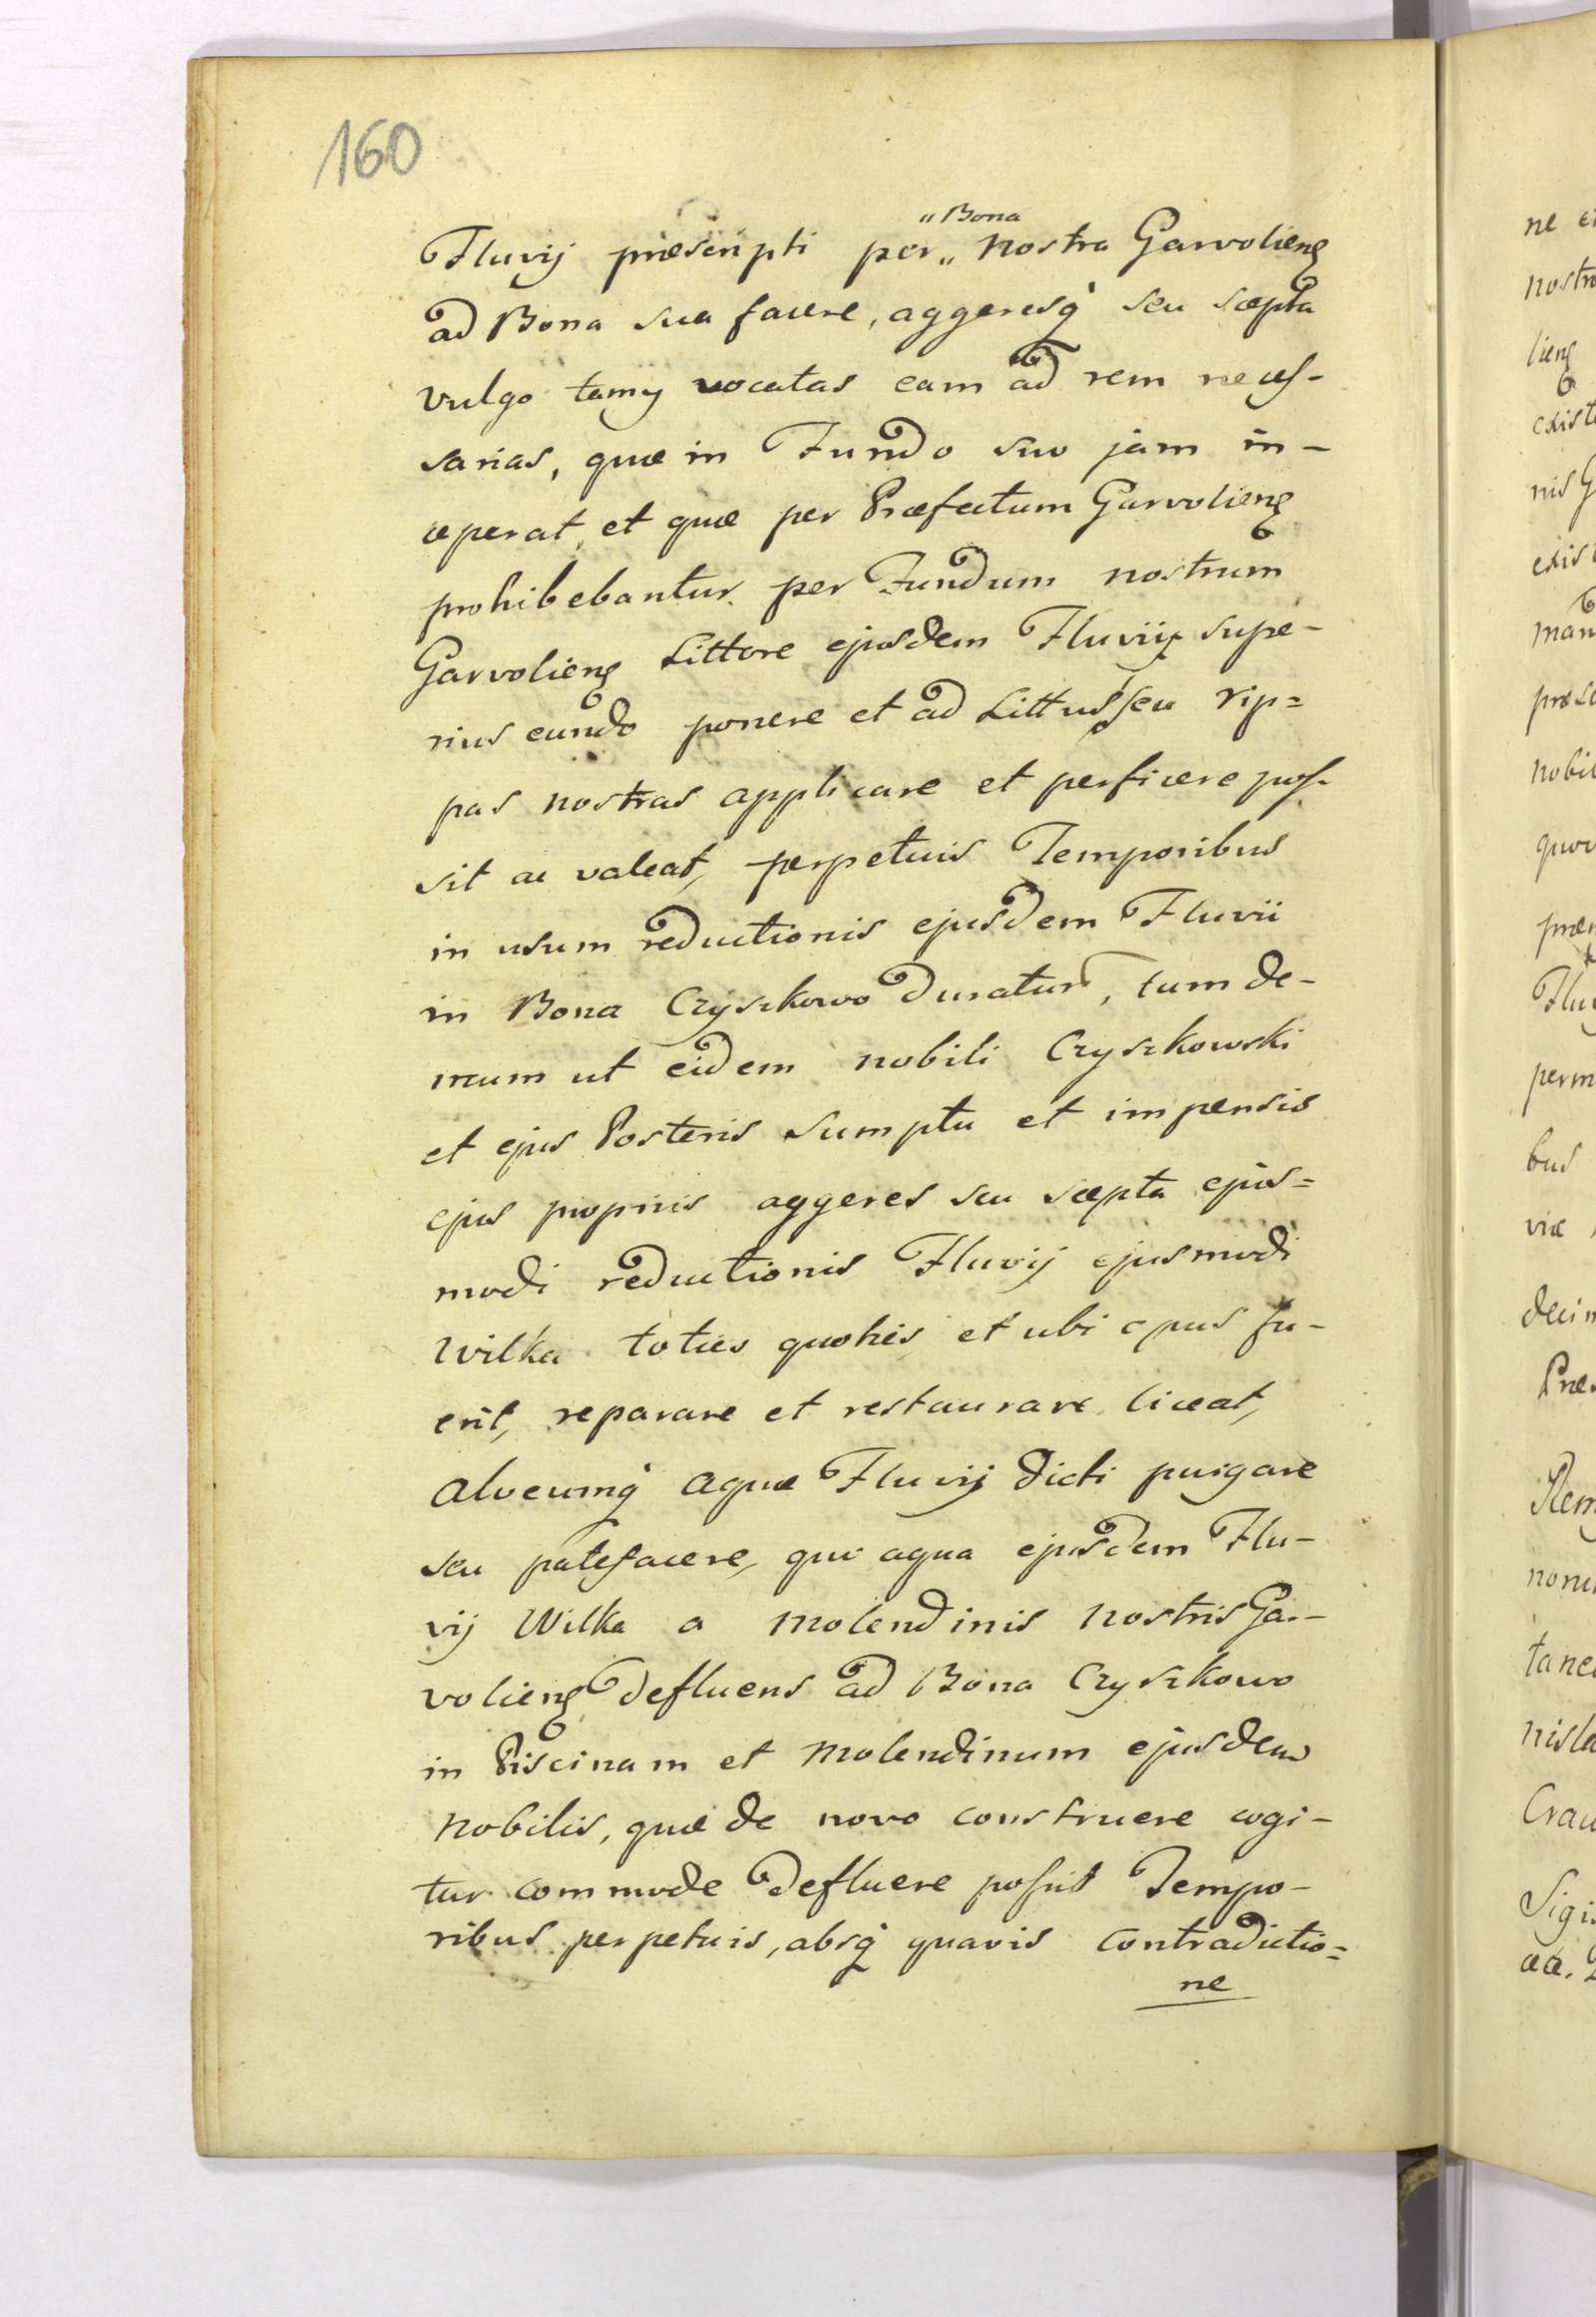 160
„Bona
Fluvij præscripti per„ nostra Garvolieng
ad Bona sua facere, aggeresq̀ seu sæpta
vulgo tamy vocatas eam ad rem necess-
sarias, quæ in Fundo suo jam in-
ceperat, et quæ per Præfectum Garvolieng
prohibebantur per Fundum nostrum
Garvolieng Littore ejusdem Fluvij supe-
rius eundo ponere et ad Littus seu rip=
pas nostras applicare et perficere pos-
sit ac valeat, perpetuis Temporibus
in usum reductionis ejusdem Fluvii
in Bona Czyszkowo duratur, tum de-
mum ut eidem nobili Czyszkowski
et ejus Posteris sumptu et impensis
ejus propriis aggeres seu sæpta ejus=
modi reductionis Fluvij ejusmodi
Wilka toties quoties et ubi opus fu-
erit, reparare et restaurare liceat,
alveumq̀ aquæ Fluvij dicti purgare
seu patefacere, quo aqua ejusdem Flu-
vij Wilka a molendinis nostris Gar-
volieng defluens ad Bona Czyszkowo
in Piscinam et molendinum ejusdem
Nobilis, quæ de novo construere cogi-
tur commode defluere possit Tempo-
ribus perpetuis, absq̀ quavis contradictio=
ne